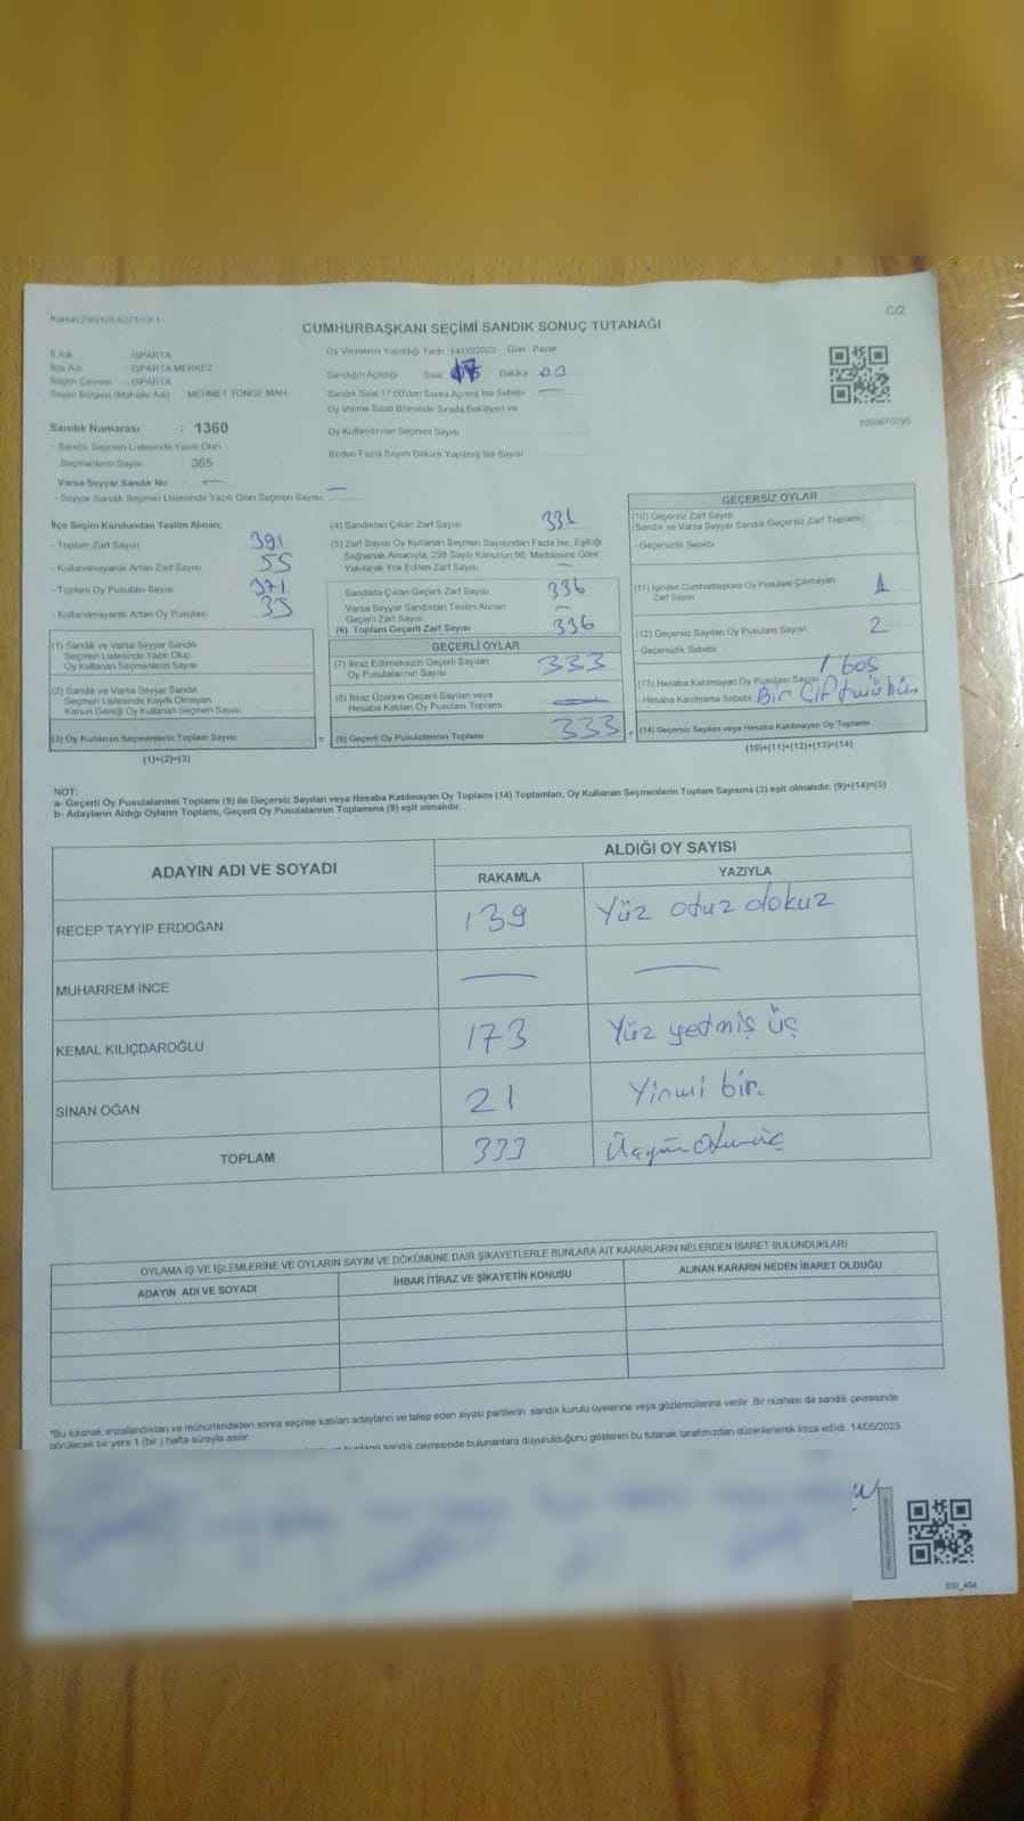 C/2
CUMHURBAŞKANI SEÇİMİ SANDIK SONUÇ TUTANAĞI
İl Adı : ISPARTA
İlçe Adı : ISPARTA MERKEZ
Seçim Çevresi : ISPARTA
MEHMET TÖNGE MAH.
Sandık Numarası : 1360
Sandık Seçmen Listesinde Yazılı Olan
Seçmenlerin Sayısı 365
Varsa Seyyar Sandık No —
- Seyyar Sandık Seçmen Listesinde Yazılı Olan Seçmen Sayısı —
Oy Verme Saati Bitiminde Sırada Bekleyen ve
Oy Kullandırılan Seçmen Sayısı
Birden Fazla Sayım Döküm Yapılmış İse Sayısı
İlçe Seçim Kurulundan Teslim Alınan;
- Toplam Zarf Sayısı 391
- Kullanılmayarak Artan Zarf Sayısı 55
- Toplam Oy Pusulası Sayısı 371
- Kullanılmayarak Artan Oy Pusulası 35
(1) Sandık ve Varsa Seyyar Sandık
Seçmen Listesinde Yazılı Olup
Oy Kullanan Seçmenlerin Sayısı
(2) Sandık ve Varsa Seyyar Sandık
Seçmen Listesinde Kayıtlı Olmayan
Kanun Gereği Oy Kullanan Seçmen Sayısı
(3) Oy Kullanan Seçmenlerin Toplam Sayısı
(1)+(2)=(3)
(4) Sandıktan Çıkan Zarf Sayısı 336
(5) Zarf Sayısı Oy Kullanan Seçmen Sayısından Fazla İse, Eşitliği
Sağlamak Amacıyla, 298 Sayılı Kanunun 98. Maddesine Göre
Yakılarak Yok Edilen Zarf Sayısı —
Sandıkta Çıkan Geçerli Zarf Sayısı 336
Varsa Seyyar Sandıktan Teslim Alınan
Geçerli Zarf Sayısı —
(6) Toplam Geçerli Zarf Sayısı 336
GEÇERLİ OYLAR
(7) İtiraz Edilmeksizin Geçerli Sayılan
Oy Pusulalarının Sayısı 333
(8) İtiraz Üzerine Geçerli Sayılan veya
Hesaba Katılan Oy Pusulası Toplamı —
(9) Geçerli Oy Pusulalarının Toplamı 333
GEÇERSİZ OYLAR
(10) Geçersiz Zarf Sayısı
(Sandık ve Varsa Seyyar Sandık Geçersiz Zarf Toplamı)
- Geçersizlik Sebebi
(11) İçinden Cumhurbaşkanı Oy Pusulası Çıkmayan
Zarf Sayısı 1
(12) Geçersiz Sayılan Oy Pusulası Sayısı 2
Geçersizlik Sebebi
1 boş
(13) Hesaba Katılmayan Oy Pusulası Sayısı
- Hesaba Katılmama Sebebi Bir Çift mühür
(14) Geçersiz Sayılan veya Hesaba Katılmayan Oy Toplamı
(10)+(11)+(12)+(13)=(14)
NOT:
a- Geçerli Oy Pusulalarının Toplamı (9) ile Geçersiz Sayılan veya Hesaba Katılmayan Oy Toplamı (14) Toplamları, Oy Kullanan Seçmenlerin Toplam Sayısına (3) eşit olmalıdır. (9)+(14)=(3)
b- Adayların Aldığı Oyların Toplamı, Geçerli Oy Pusulalarının Toplamına (9) eşit olmalıdır.
ADAYIN ADI VE SOYADI
ALDIĞI OY SAYISI
RAKAMLA YAZIYLA
RECEP TAYYİP ERDOĞAN 139 Yüz otuz dokuz
MUHARREM İNCE — —
KEMAL KILIÇDAROĞLU 173 Yüz yetmiş üç
SİNAN OĞAN 21 Yirmi bir.
TOPLAM 333
OYLAMA İŞ VE İŞLEMLERİNE VE OYLARIN SAYIM VE DÖKÜMÜNE DAİR ŞİKAYETLERLE BUNLARA AİT KARARLARIN NELERDEN İBARET BULUNDUKLARI
ADAYIN ADI VE SOYADI İHBAR İTİRAZ VE ŞİKAYETİN KONUSU ALINAN KARARIN NEDEN İBARET OLDUĞU
*Bu tutanak, imzalandıktan ve mühürlendikten sonra seçime katılan adayların ve talep eden siyasi partilerin sandık kurulu üyelerine veya gözlemcilerine verilir. Bir nüshası da sandık çevresinde
görülecek bir yere 1 (bir) hafta süreyle asılır.
sandık çevresinde bulunanlara duyurulduğunu gösteren bu tutanak tarafımızdan düzenlenerek imza edildi. 14/05/2023